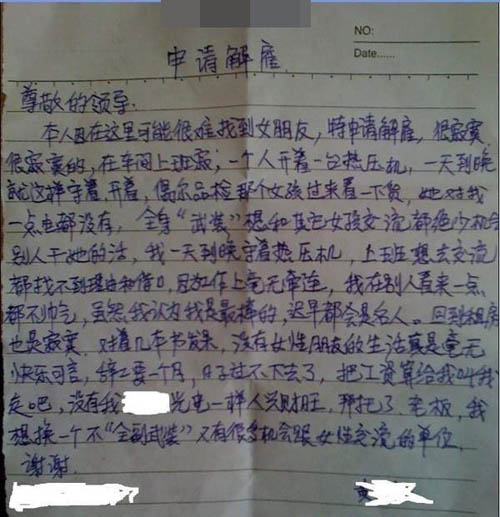 NO:
Date......
申请解雇
尊敬的领导:
本人因在这里可能很难找到女朋友，特申请解雇，很寂寞
很寂寞的，在车间上班寂；一个人开着一台热压机，一天到晚
就这样守着，开着，偶尔品检那个女孩过来看一下货，她对我
一点电都没有，全身“武装”想和其它女孩交流都绝少机会
别人干她的活，我一天到晚守着热压机，上班想去交流
都找不到理由和借口，因工作上毫无牵连，我在别人看来一点
都不帅气，虽然我认为我是最棒的，迟早都会是名人。回到租房
也是寂寞，对着几本书发呆，没有女性朋友的生活真是毫无
快乐可言，辞工要一个月，日子过不下去了，把工资算给我叫我
走吧，没有我 光电一样人兴财旺，拜托了，老板，我
想换一个不“全副武装”又有很多机会跟女性交流的单位，
谢谢.